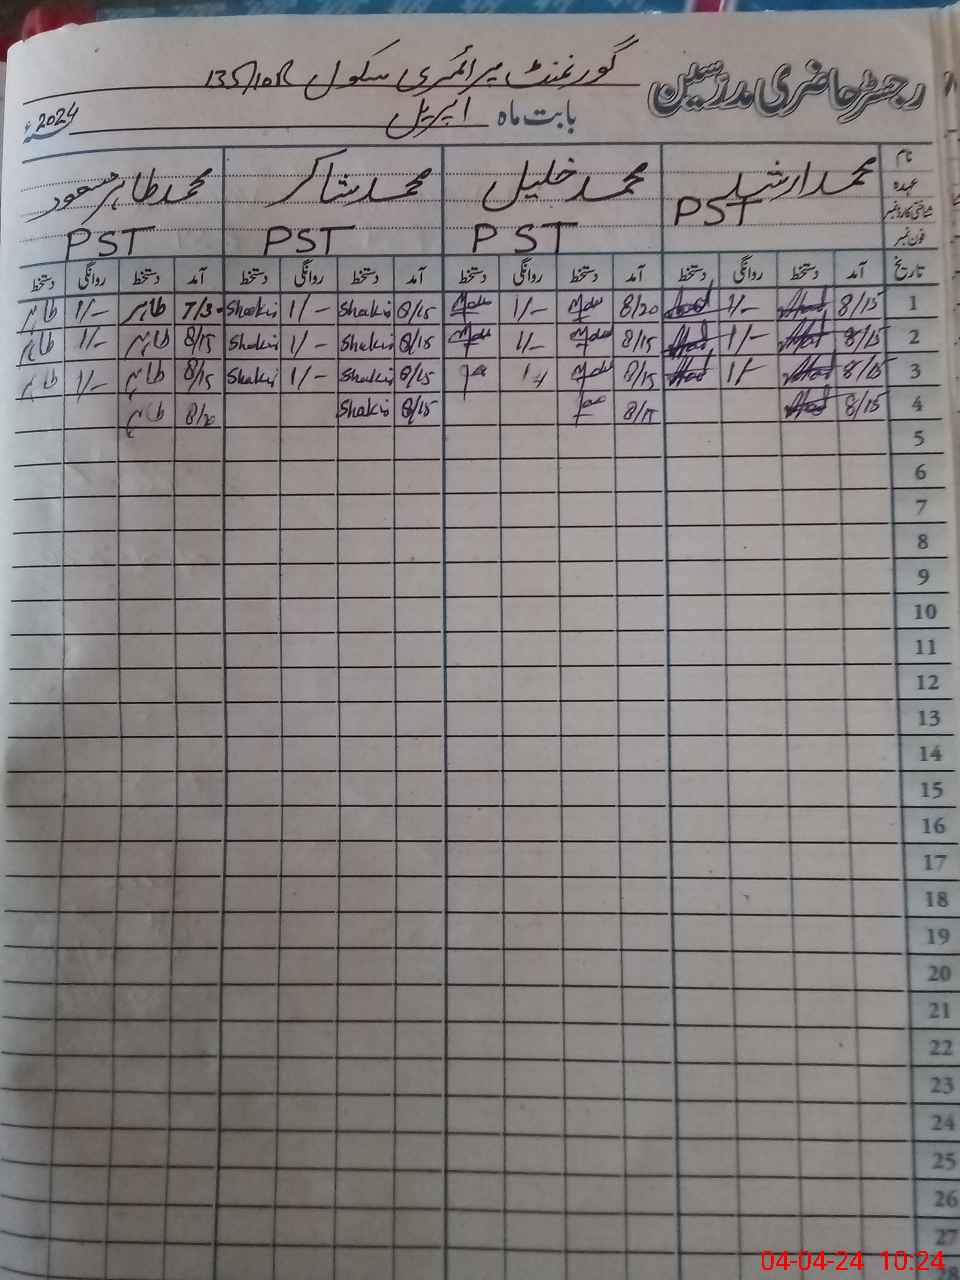 رجسٹر حاضری مدرسین گورنمنٹ پرائمری سکول 135/10R
بابت ماہ اپریل 2024ء
نام محمد ارشد محمد خلیل محمد شاکر محمد طاہر مسعود
عہدہ PST PST PST PST
شناختی کارڈ نمبر
فون نمبر
تاریخ آمد دستخط روانگی دستخط آمد دستخط روانگی دستخط آمد دستخط روانگی دستخط آمد دستخط روانگی دستخط
1 8/15 1/- 8/20 1/- 8/15 Shakir 1/- Shakir 7/30 طاہر 1/- طاہر
2 8/15 1/- 8/15 1/- 8/15 Shakir 1/- Shakir 8/15 طاہر 1/- طاہر
3 8/15 1/- 8/15 8/15 Shakir 1/- Shakir 8/15 طاہر 1/- طاہر
4 8/15 8/15 8/15 Shakir طاہر
5
6
7
8
9
10
11
12
13
14
15
16
17
18
19
20
21
22
23
24
25
26
27
28
04-04-24 10:24